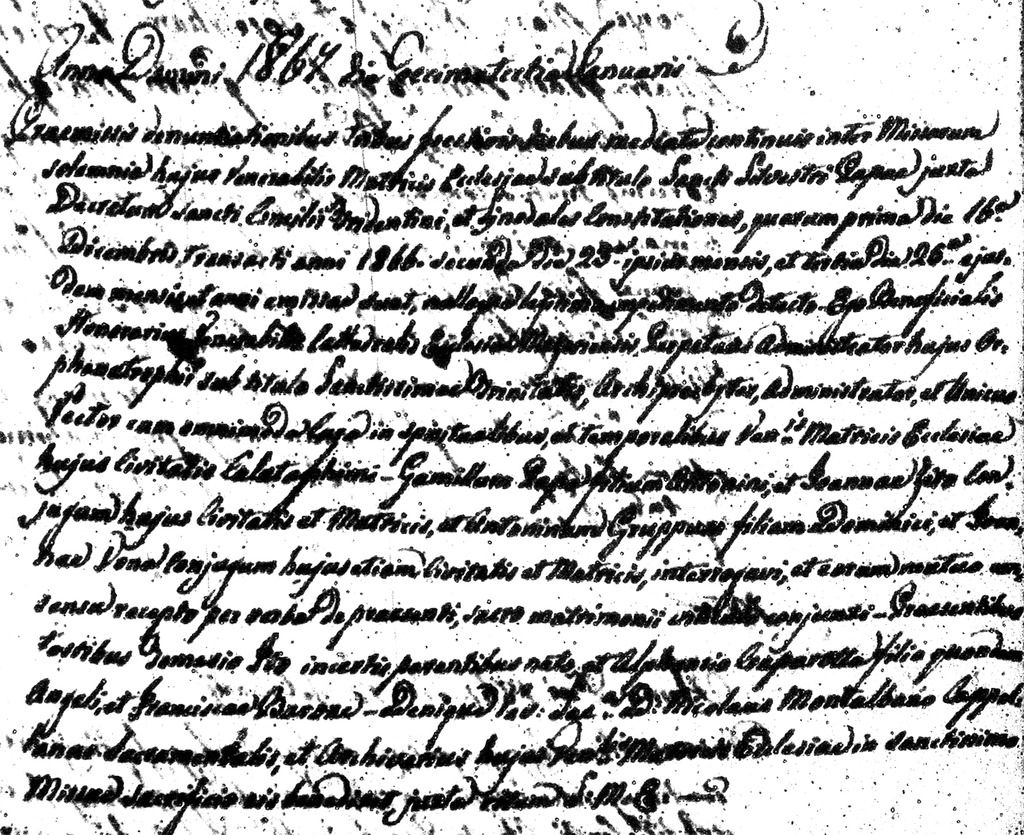 Anno Domini 1867 die decimatertia Januarii
Praemissis denunciationibus tribus festivis diebus mediate continuis inter Missarum
solemnia hujus Venerabilis Matricis Ecclesiae sub titulo Sancti Silvestri Papae juxta
Decretum Sancti Concilii Tridentini, et Sinodales Constitutiones, quarum prima die 16.a
Decembris transacti anni 1866. secunda die 23.a ipsius mensis, et tertia die 26.a ejus-
dem mensis, et anni emissae sunt, nulloque legitimo impedimento detecto. Ego Beneficialis
Honorarius Venerabilis Cathedralis Ecclesiae Mazariensis, Perpetuus Administrator hujus Or-
phanotrophii sub titulo Sanctissimae Trinitatis, Archipresbyter, Administrator, et Unicus
Rector cum omnimoda in spiritualibus, et temporalibus Ven.lis Matricis Ecclesiae
hujus Civitatis Calataphimi - Camillum Papa filium Antonini, et Joannae Fito Con-
jugum hujus Civitatis et Matricis, et Antoninam Gruppuso filiam Dominici, et Joan-
nae Vona Conjugum hujus etiam Civitatis et Matricis, interrogavi, et eorum mutuo con-
sensu recepto per verba de praesenti, in sacro matrimonii conjunxi - Praesentibus
testibus Ito incertis parentibus nato, et Alphonsio Craparotta filio quondam
Angeli, et Franciscae - Denique Rev: Sac: D: Nicolaus Montalbano Cappel-
lanus Sacramentalis, et Archivarius hujus Ven.lis Matricis Ecclesiae in sanctissimo
Missae sacrificio eis benedixit, juxta ritum S: M: E: